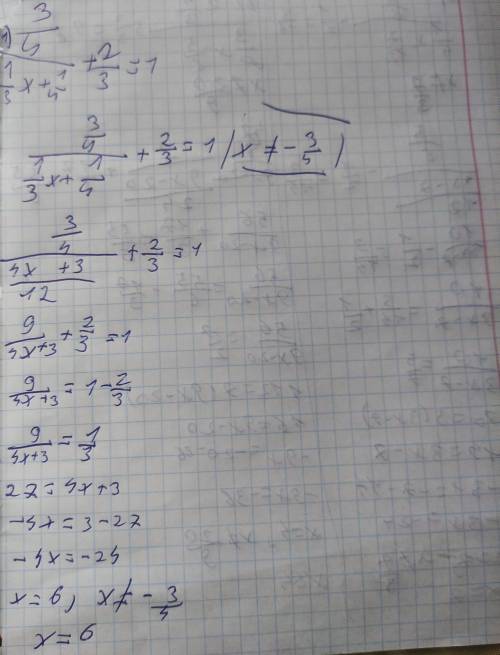 1) (3/4)/(1/3 x + 1/4) + 2/3 = 1
(3/4)/(1/3 x + 1/4) + 2/3 = 1 / x ≠ - 3/4 )
(3/4)/((4x + 3)/12) + 2/3 = 1
9/(4x+3) + 2/3 = 1
9/(4x+3) = 1 - 2/3
9/(4x+3) = 1/3
27 = 4x + 3
-4x = 3 - 27
-4x = -24
x = 6, x ≠ - 3/4
x = 6